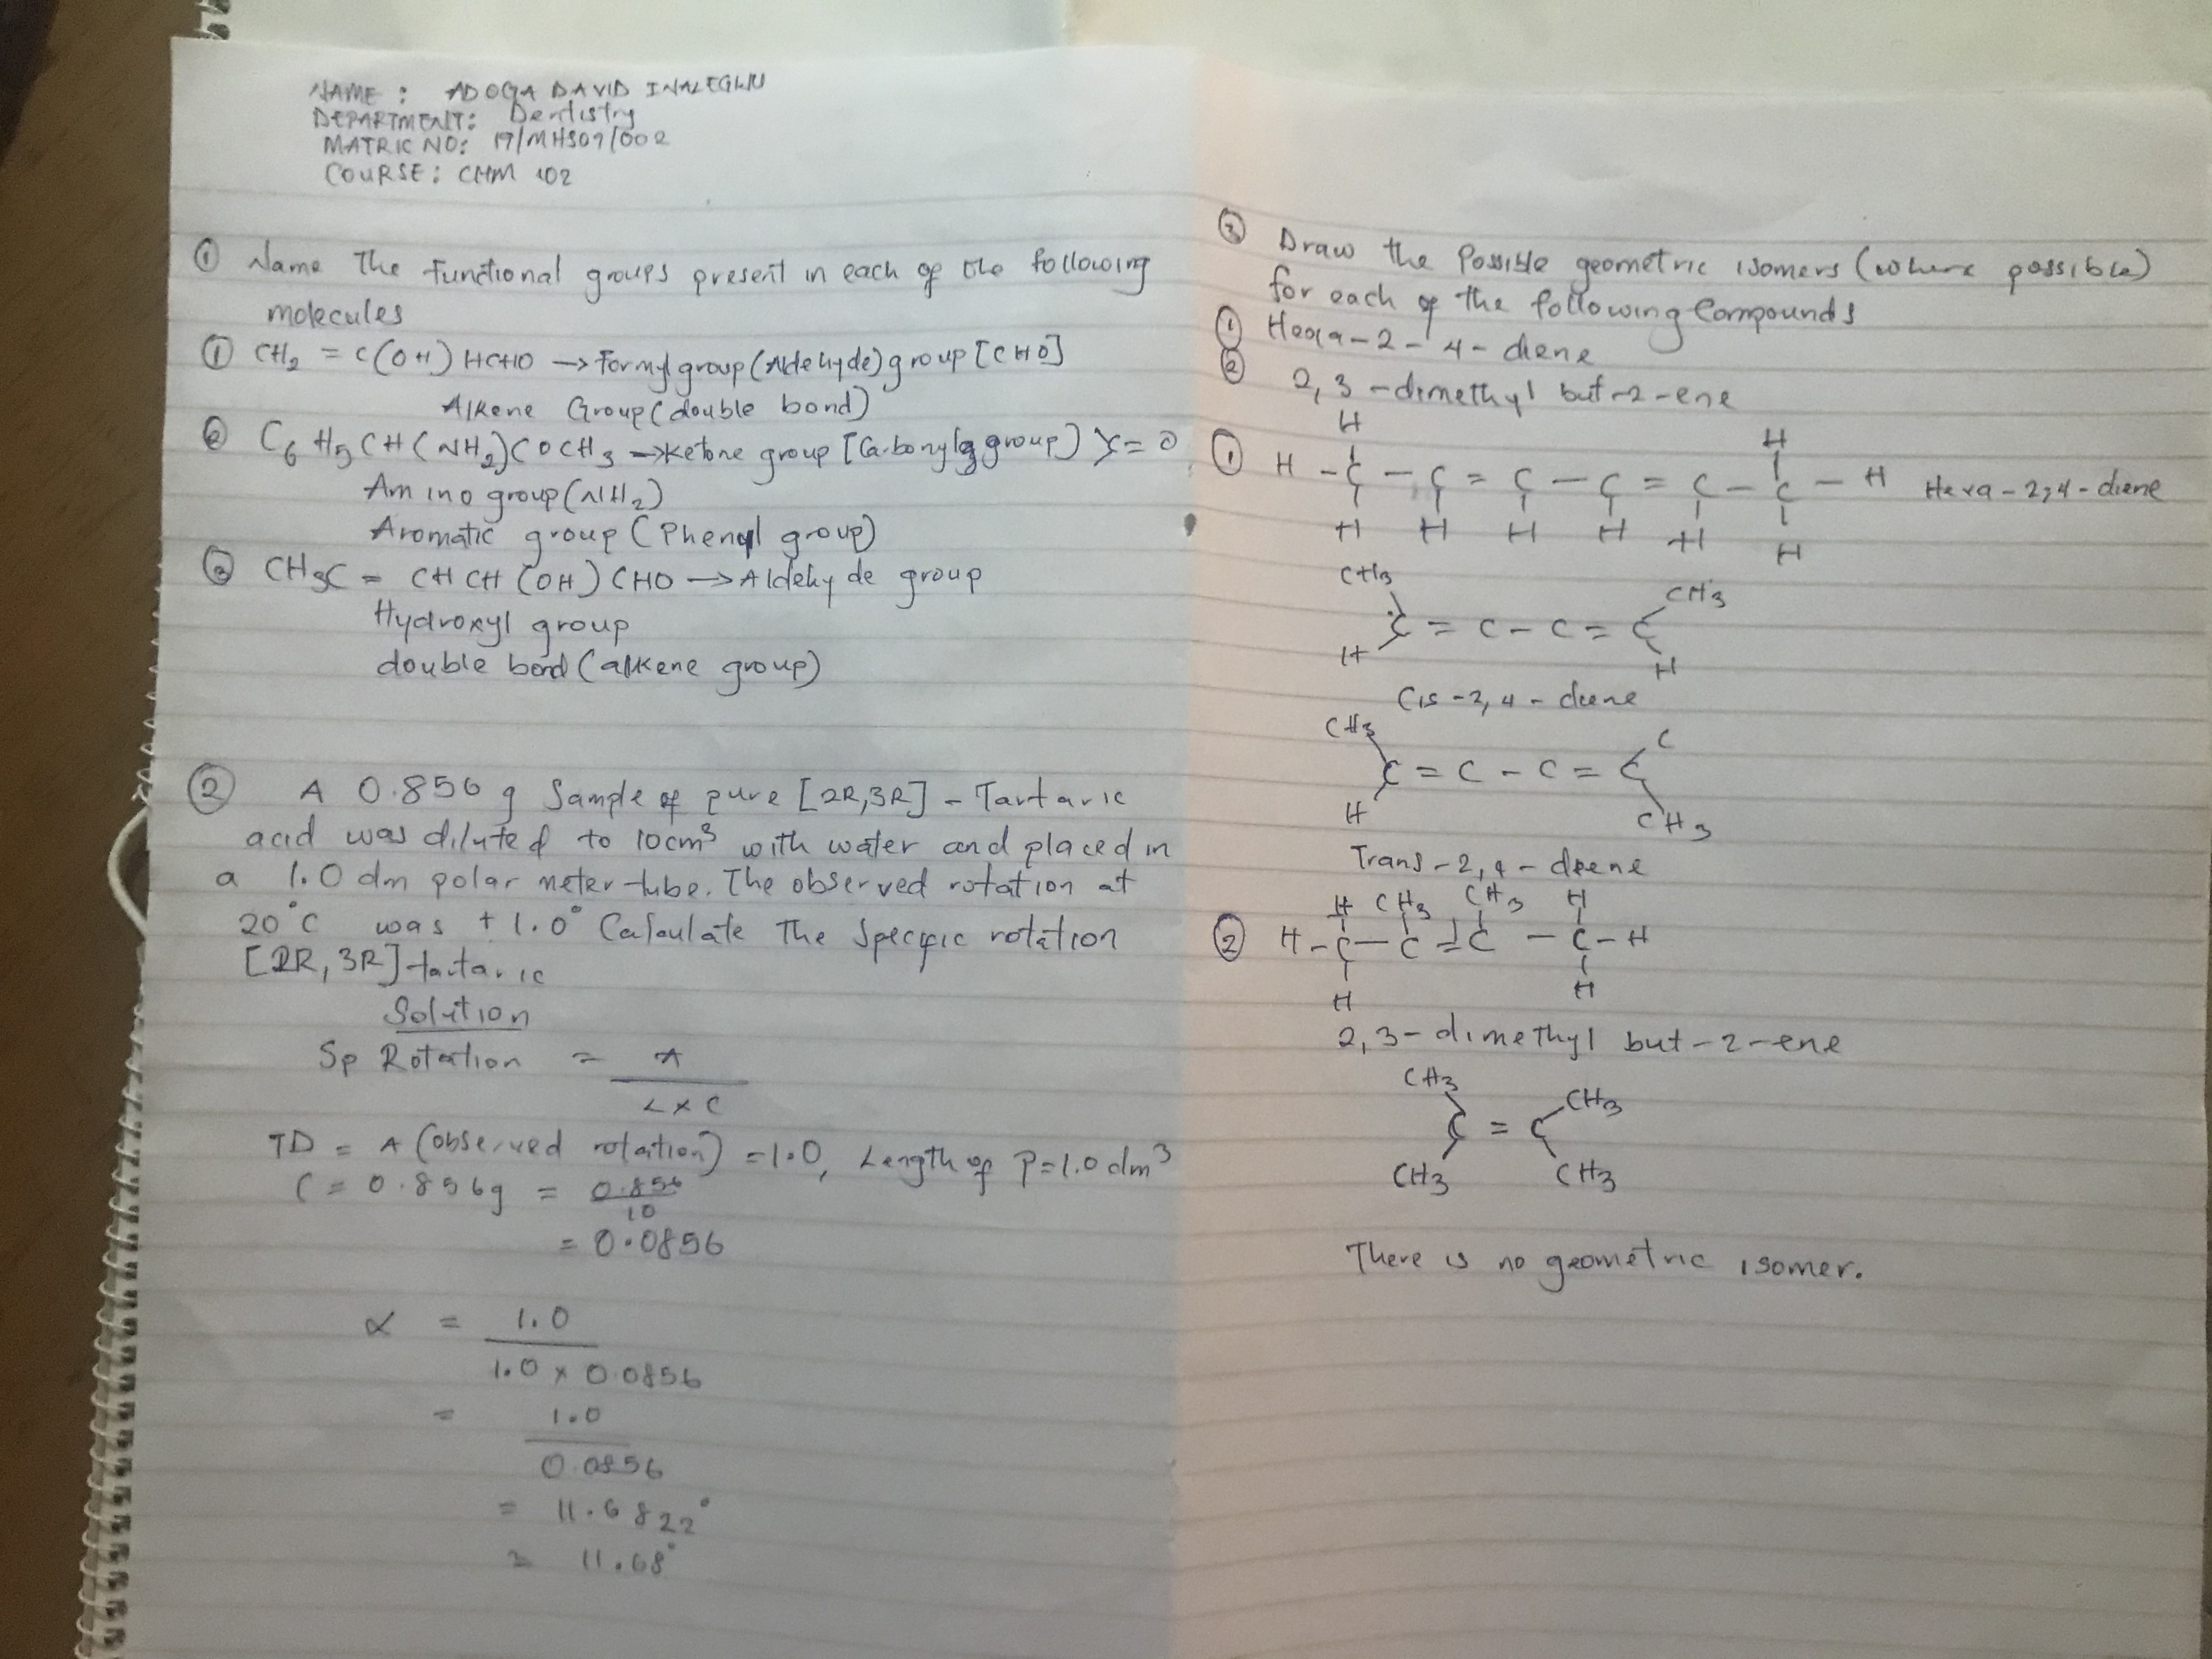 NAME : ADOGA DAVID INALEGWU
DEPARTMENT: Dentistry
MATRIC NO: 19/MHS09/002
COURSE: CHM 102
① Name The functional groups present in each of the following
molecules
① CH₂ = C(OH) HCHO → Formyl group (Aldehyde) group [CHO]
Alkene Group (double bond)
② C₆H₅CH(NH₂)COCH₃ → Ketone group [Carbonyl group) >C=O
Amino group (NH₂)
Aromatic group (Phenyl group)
③ CH₃C = CHCH(OH)CHO → Aldehyde group
Hydroxyl group
double bond (alkene group)
② A 0.856g Sample of pure [2R,3R] - Tartaric
acid was diluted to 10cm³ with water and placed in
a 1.0 dm polar meter tube. The observed rotation at
20°C was + 1.0° Calculate The Specific rotation
[2R, 3R] tartaric
Solution
Sp Rotation = A
L x C
TD = A (observed rotation) = 1.0, Length of P = 1.0 dm³
C = 0.856g = 0.856
10
= 0.0856
α = 1.0
1.0 x 0.0856
= 1.0
0.0856
= 11.6822°
= 11.68°
③ Draw the Possible geometric isomers (where possible)
for each of the following Compounds
① Hexa-2-4-diene
② 2,3-dimethyl but-2-ene
H H
① H - C - C = C - C = C - C - H Hexa-2,4-diene
H H H H H H
CH₃ CH₃
C = C - C = C
H H
Cis-2,4-diene
CH₃ C
C = C - C = C
H CH₃
Trans-2,4-diene
H CH₃ CH₃ H
② H - C - C = C - C - H
H H
2,3-dimethyl but-2-ene
CH₃ CH₃
C = C
CH₃ CH₃
There is no geometric isomer.